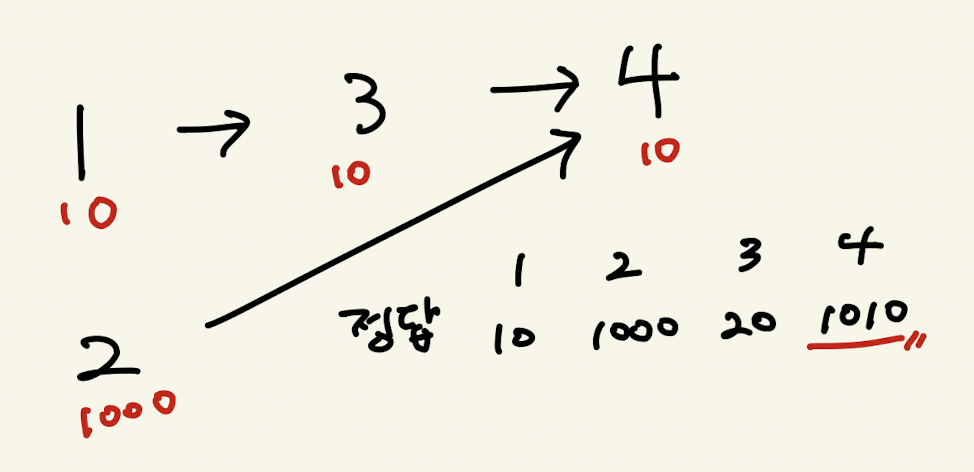 1 → 3 → 4
10 10 10
2
1000
1 2 3 4
정답 10 1000 20 1010